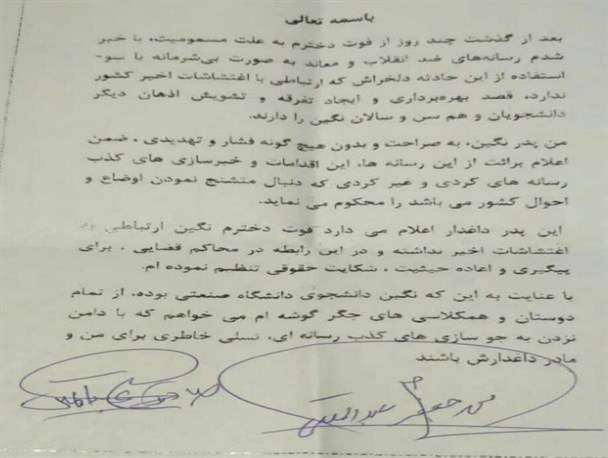 باسمه تعالی
بعد از گذشت چند روز از فوت دخترم به علت مسمومیت، با خبر
شدم رسانه‌های ضد انقلاب و معاند به صورت بی‌شرمانه با سو-
استفاده از این حادثه دلخراش که ارتباطی با اغتشاشات اخیر کشور
ندارد، قصد بهره‌برداری و ایجاد تفرقه و تشویش اذهان دیگر
دانشجویان و هم سن و سالان نگین را دارند.
من پدر نگین، به صراحت و بدون هیچ گونه فشار و تهدیدی ، ضمن
اعلام برائت از این رسانه ها، این اقدامات و خبرسازی های کذب
رسانه های کردی و غیر کردی که دنبال متشنج نمودن اوضاع و
احوال کشور می باشد را محکوم می نماید.
این پدر داغدار اعلام می دارد فوت دخترم نگین ارتباطی به
اغتشاشات اخیر نداشته و در این رابطه در محاکم قضایی ، برای
پیگیری و اعاده حیثیت ، شکایت حقوقی تنظیم نموده ام.
با عنایت به این که نگین دانشجوی دانشگاه صنعتی بوده، از تمام
دوستان و همکلاسی های جگر گوشه ام می خواهم که با دامن
نزدن به جو سازی های کذب رسانه ای، تسلی خاطری برای من و
مادر داغدارش باشند